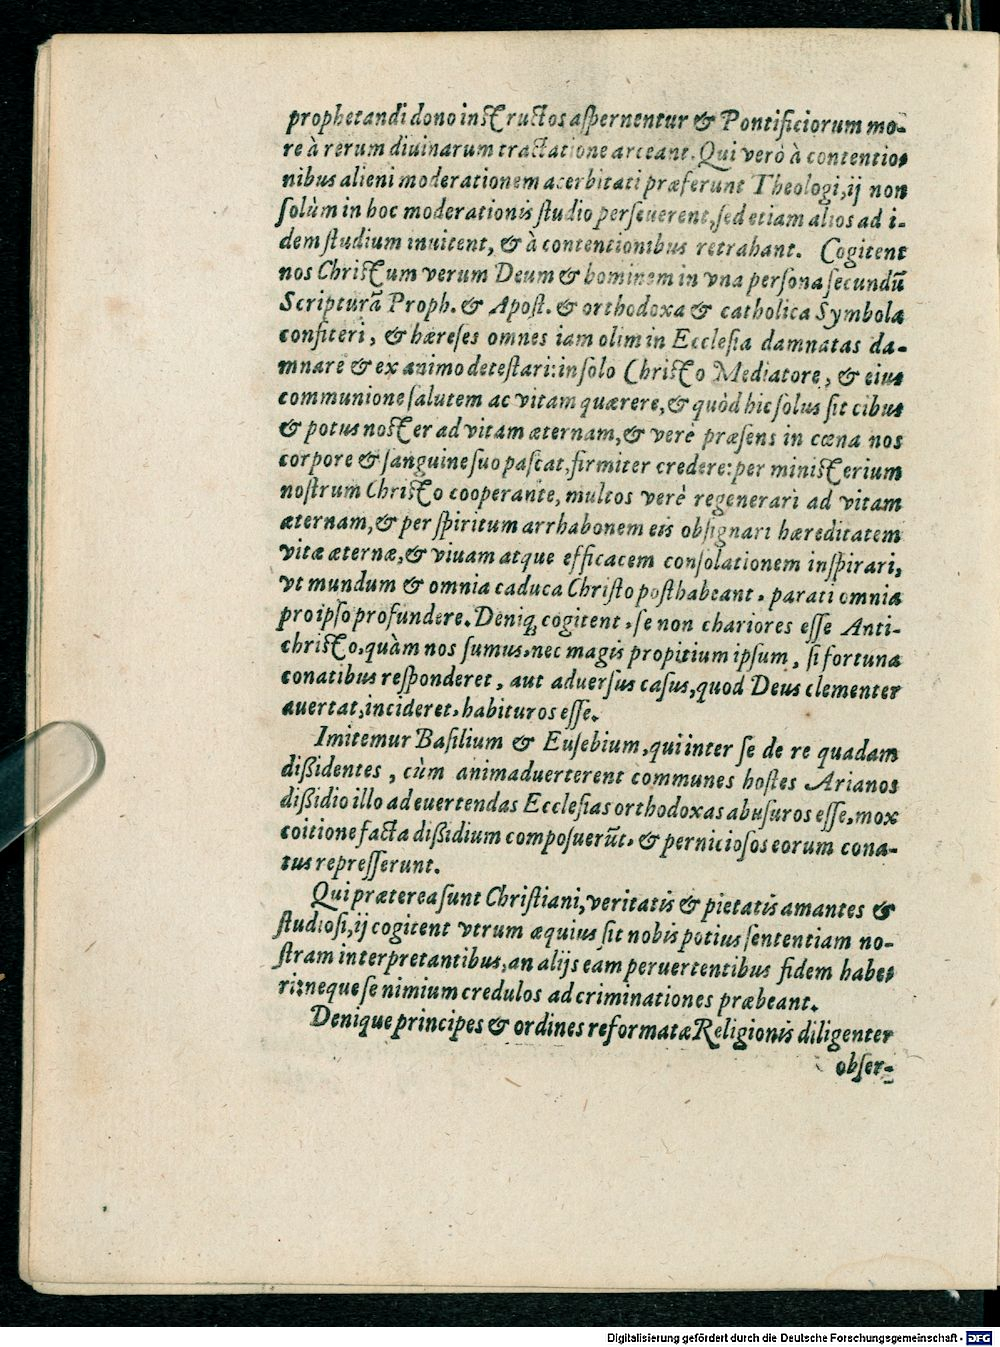 prophetandi dono instructos aspernentur & Pontificiorum mo-
re à rerum diuinarum tractatione arceant. Qui verò à contentio-
nibus alieni moderationem acerbitati præferunt Theologi, ij non
solùm in hoc moderationis studio perseuerent, sed etiam alios ad i-
dem studium inuitent, & à contentionibus retrahant. Cogitent
nos Christum verum Deum & hominem in vna persona secundũ
Scripturã Proph. & Apost. & orthodoxa & catholica Symbola
confiteri, & hæreses omnes iam olim in Ecclesia damnatas da-
mnare & ex animo detestari: in solo Christo Mediatore, & eius
communione salutem ac vitam quærere, & quòd hic solus sit cibus
& potus noster ad vitam æternam, & verè præsens in cœna nos
corpore & sanguine suo pascat, firmiter credere: per ministerium
nostrum Christo cooperante, multos verè regenerari ad vitam
æternam, & per spiritum arrhabonem eis obsignari hæreditatem
vitæ æternæ, & viuam atque efficacem consolationem inspirari,
vt mundum & omnia caduca Christo posthabeant, parati omnia
pro ipso profundere. Deniq; cogitent, se non chariores esse Anti-
christo, quàm nos sumus, nec magis propitium ipsum, si fortuna
conatibus responderet, aut aduersus casus, quod Deus clementer
auertat, incideret, habituros esse.
Imitemur Basilium & Eusebium, qui inter se de re quadam
dißidentes, cùm animaduerterent communes hostes Arianos
dißidio illo ad euertendas Ecclesias orthodoxas abusuros esse, mox
coitione facta dißidium composuerũt, & perniciosos eorum cona-
tus represserunt.
Qui præterea sunt Christiani, veritatis & pietatis amantes &
studiosi, ij cogitent vtrum æquius sit nobis potius sententiam no-
stram interpretantibus, an alijs eam peruertentibus fidem habe-
ri: neque se nimium credulos ad criminationes præbeant.
Denique principes & ordines reformatæ Religionis diligenter
obser-
Digitalisierung gefördert durch die Deutsche Forschungsgemeinschaft - DFG